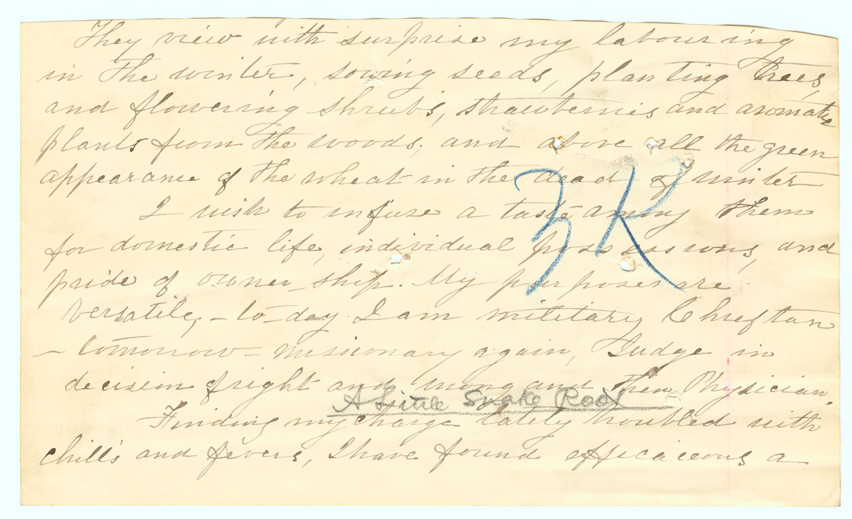 They view with surprise my labouring
in the winter, sowing seeds, planting trees
and flowering shrubs, strawberries and aromatic
plants from the woods, and above all the green
appearance of the wheat in the dead of winter
I wish to infuse a taste among them
for domestic life, individual possessions, and
pride of owner-ship. My purposes are
versatile, - to-day I am military Chieftan
- tomorrow - missionary again, Judge in
decision of right and wrong and then Physician.
A Little Snake Root
Finding my charge lately troubled with
chills and fevers, I have found efficaceous a
3 R